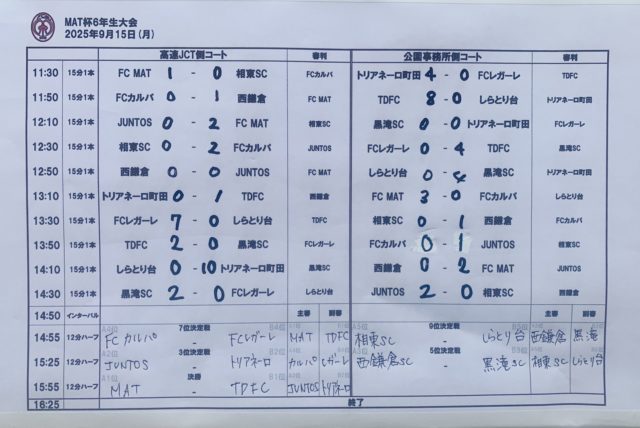 MAT杯6年生大会
2025年9月15日(月)
高速JCT側コート 審判 公園事務所側コート 審判
11:30 15分1本 FC MAT 1 - 0 相東SC FCカルパ トリアネーロ町田 4 - 0 FCレガーレ TDFC
11:50 15分1本 FCカルパ 0 - 1 西鎌倉 FC MAT TDFC 8 - 0 しらとり台 トリアネーロ町田
12:10 15分1本 JUNTOS 0 - 2 FC MAT 相東SC 黒滝SC 0 - 0 トリアネーロ町田 FCレガーレ
12:30 15分1本 相東SC 0 - 2 FCカルパ JUNTOS FCレガーレ 0 - 4 TDFC 黒滝SC
12:50 15分1本 西鎌倉 0 - 0 JUNTOS FC MAT しらとり台 0 - 黒滝SC トリアネーロ町田
13:10 15分1本 トリアネーロ町田 0 - 1 TDFC 西鎌倉 FC MAT 3 - 0 FCカルパ しらとり台
13:30 15分1本 FCレガーレ 7 - 0 しらとり台 TDFC 相東SC 0 - 1 西鎌倉 FCカルパ
13:50 15分1本 TDFC 2 - 0 黒滝SC FCレガーレ FCカルパ 0 - 1 JUNTOS 相東SC
14:10 15分1本 しらとり台 0 - 10 トリアネーロ町田 黒滝SC 西鎌倉 0 - 2 FC MAT JUNTOS
14:30 15分1本 黒滝SC 2 - 0 FCレガーレ しらとり台 JUNTOS 2 - 0 相東SC 西鎌倉
14:50 インターバル 主審 副審 主審 副審
14:55 12分ハーフ A4位 FCカルパ 7位決定戦 - B4位 FCレガーレ MAT TDFC A5位 相東SC 9位決定戦 - しらとり台 西鎌倉 黒滝
15:25 12分ハーフ A2位 JUNTOS 3位決定戦 - B2位 トリアネーロ カルパ レガーレ 西鎌倉SC 5位決定戦 - 黒滝SC 相東SC しらとり台
15:55 12分ハーフ A1位 MAT 決勝 - B1位 TDFC JUNTOS トリアネロ
16:25 終了